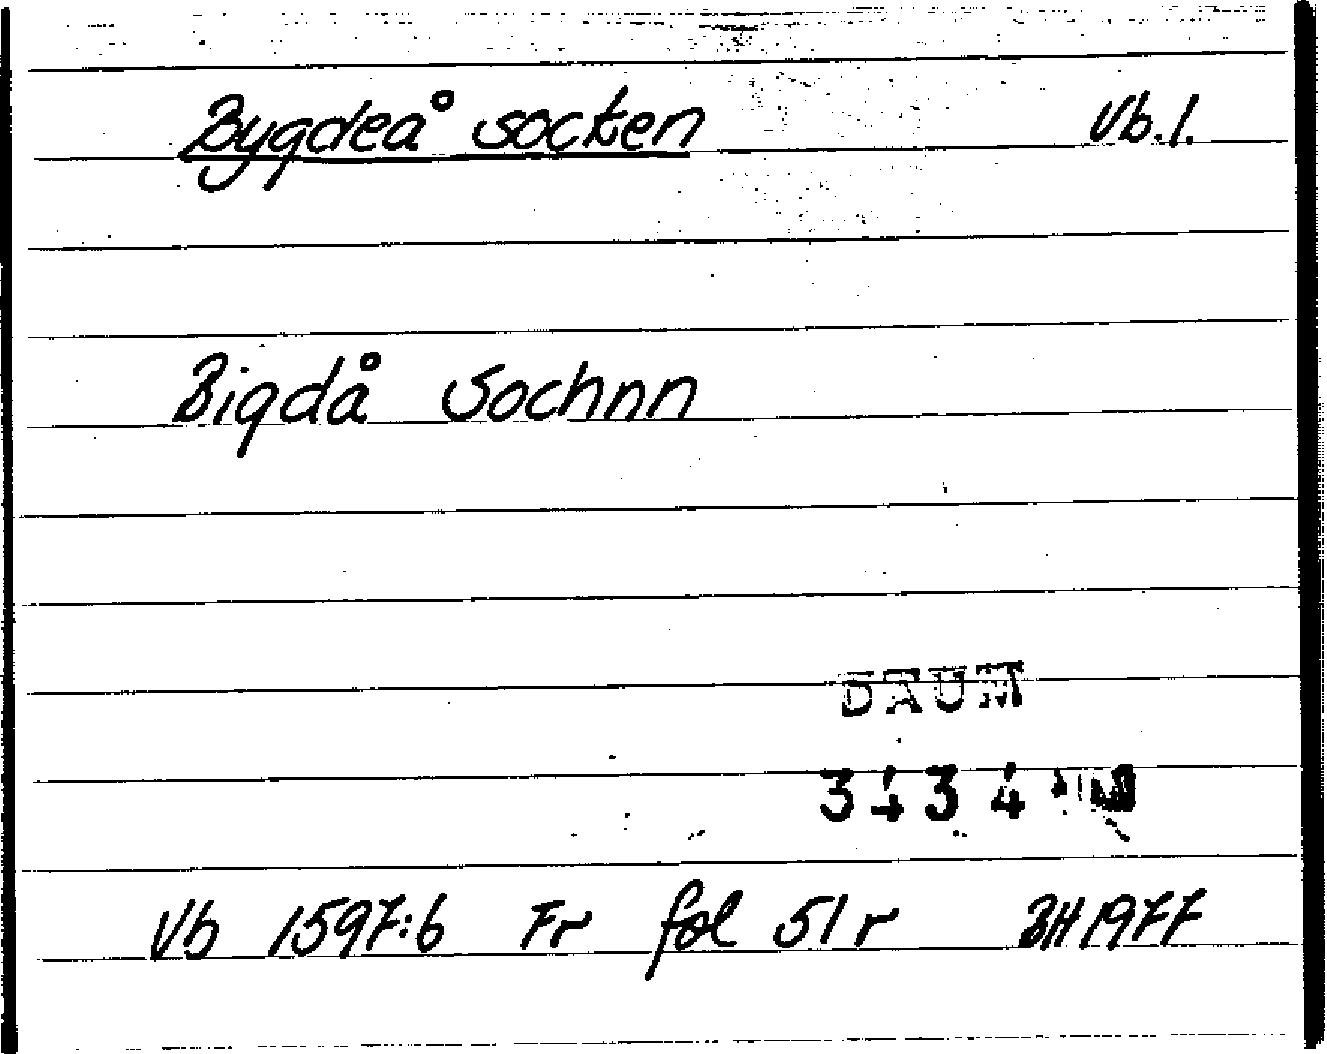 Bygdeå socken Vb.l.
Bigdå Sochnn
DAUM
3434
Vb 1597:6 Fr fol 51r BH 1977